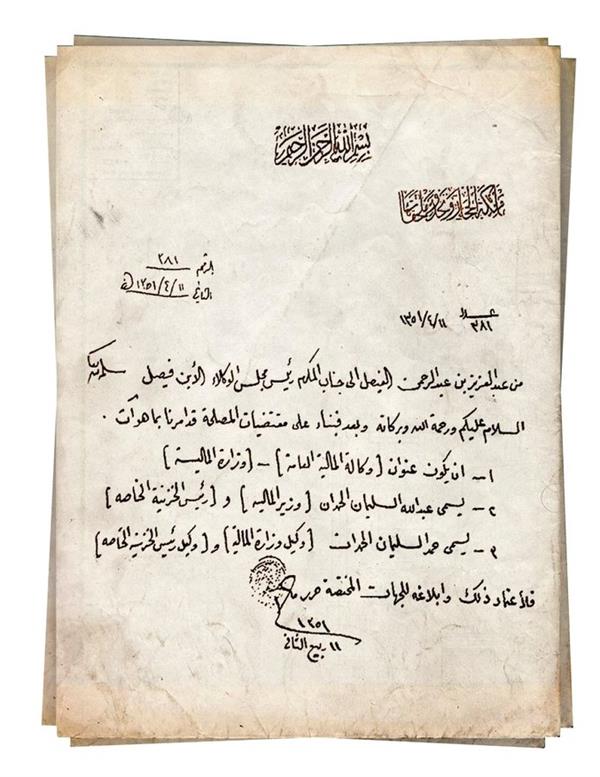 بسم الله الرحمن الرحيم
مملكة الحجاز ونجد وملحقاتها
الرقم ٣٨١
التاريخ ١١/٤/١٣٥١
عدد ٣٨١ ١١/٤/١٣٥١
من عبدالعزيز بن عبدالرحمن الفيصل الى جناب المكرم رئيس مجلس الوكلاء الأبن فيصل سلمه الله
السلام عليكم ورحمة الله وبركاته وبعد فبناء على مقتضيات المصلحة قد امرنا بما هو آت .
١ــ ان يكون عنوان [وكالة المالية العامة] ــ [وزارة المالية]
٢ــ يسمى عبدالله السليمان الحمدان [وزير الماليه] و [رئيس الخزينة الخاصه]
٣ــ يسمى حمد السليمان الحمدان [وكيل وزارة المالية] و [وكيل رئيس الخزينة الخاصه]
فلأعتماد ذلك وابلاغه للجهات المختصة حرر
١٣٥١
١١ ربيع الثاني